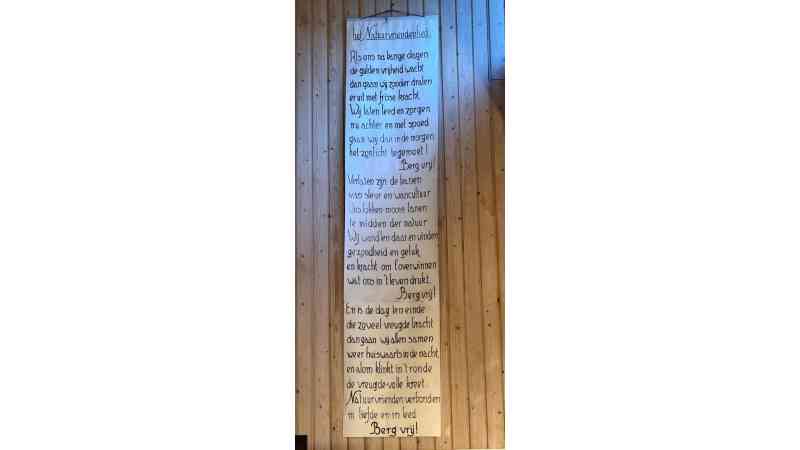 het Natuurvriendenlied.
Als ons na lange dagen
de gulden vrijheid wacht
dan gaan wij zonder dralen
eruit met frisse kracht.
Wij laten leed en zorgen
nu achter en met spoed
gaan wij dan in de morgen
het zonlicht tegemoet!
Berg vrij!
Verlaten zijn de banen
van sleur en wancultuur
Ons lokken mooie lanen
te midden der natuur
Wij wand'len daar en vinden
gezondheid en geluk
en kracht om t'overwinnen
wat ons in 't leven drukt.
Berg vrij!
En is de dag ten einde
die zoveel vreugde bracht
dan gaan wij allen samen
weer huiswaarts in de nacht
en alom klinkt in 't ronde
de vreugde-volle kreet.
Natuurvrienden verbonden
in liefde en in leed
Berg vrij!